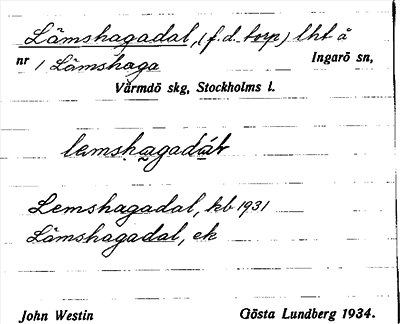 Lämshagadal, (f.d. torp) lht å
nr 1 Lämshaga Ingarö sn,
Värmdö skg, Stockholms l.
lamshagadáɫ
Lemshagadal, kb 1931
Lämshagadal, ek
John Westin Gösta Lundberg 1934.